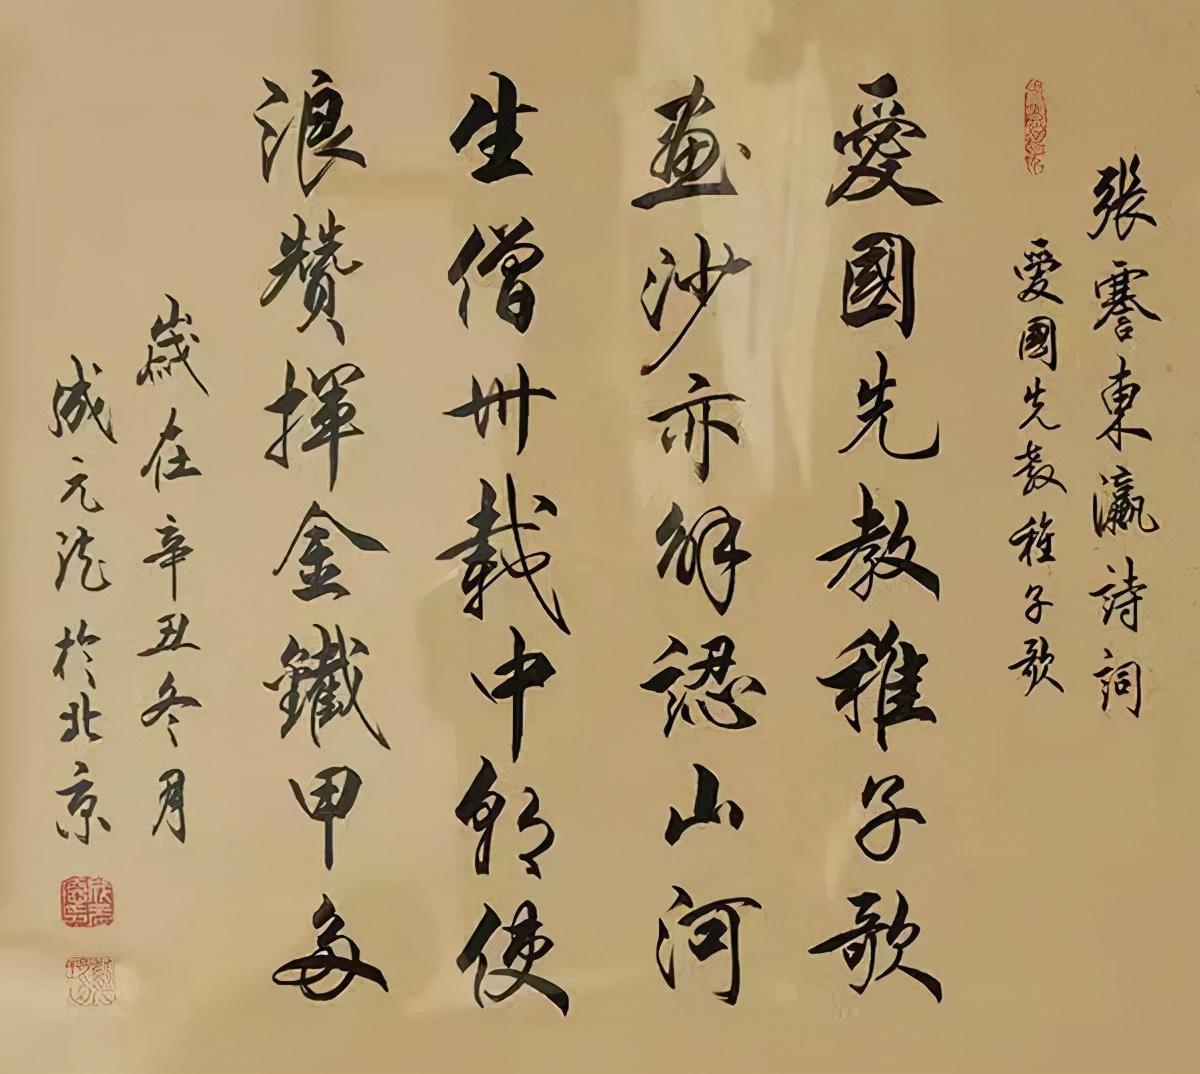 張謇東瀛詩詞
愛國先教稚子歌
愛國先教稚子歌
畫沙亦解認山河
生僧卅載中朝使
浪贊揮金鐵甲多
歲在辛丑冬月
成元 於北京